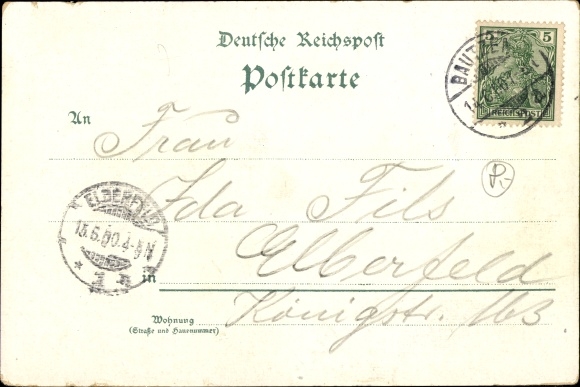 Deutsche Reichspost
Postkarte
5
BAUTZEN
REICHSPOST
An
Frau
Ida Fils
ELBERFELD
15.6.00.4-5N
in Elberfeld
Wohnung
(Straße und Hausnummer)
Königstr. 163